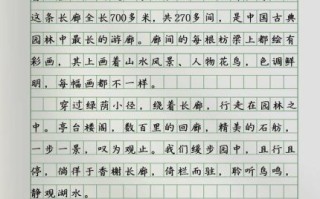 这条长廊全长700多米，共270多间，是中国古典
园林中最长的游廊。廊间的每根枋梁上都绘有
彩画，其上画着山水风景、人物花鸟，色调鲜
明，每幅画都不一样。
穿过绿荫小径，绕着长廊，行走在园林之
中。亭台楼阁，数百里的回廊，精美的石舫，
一步一景，叹为观止。我们缓步园中，且行且
停，徜徉于香榭长廊，倚栏而驻，聆听鸟鸣，
静观湖水。